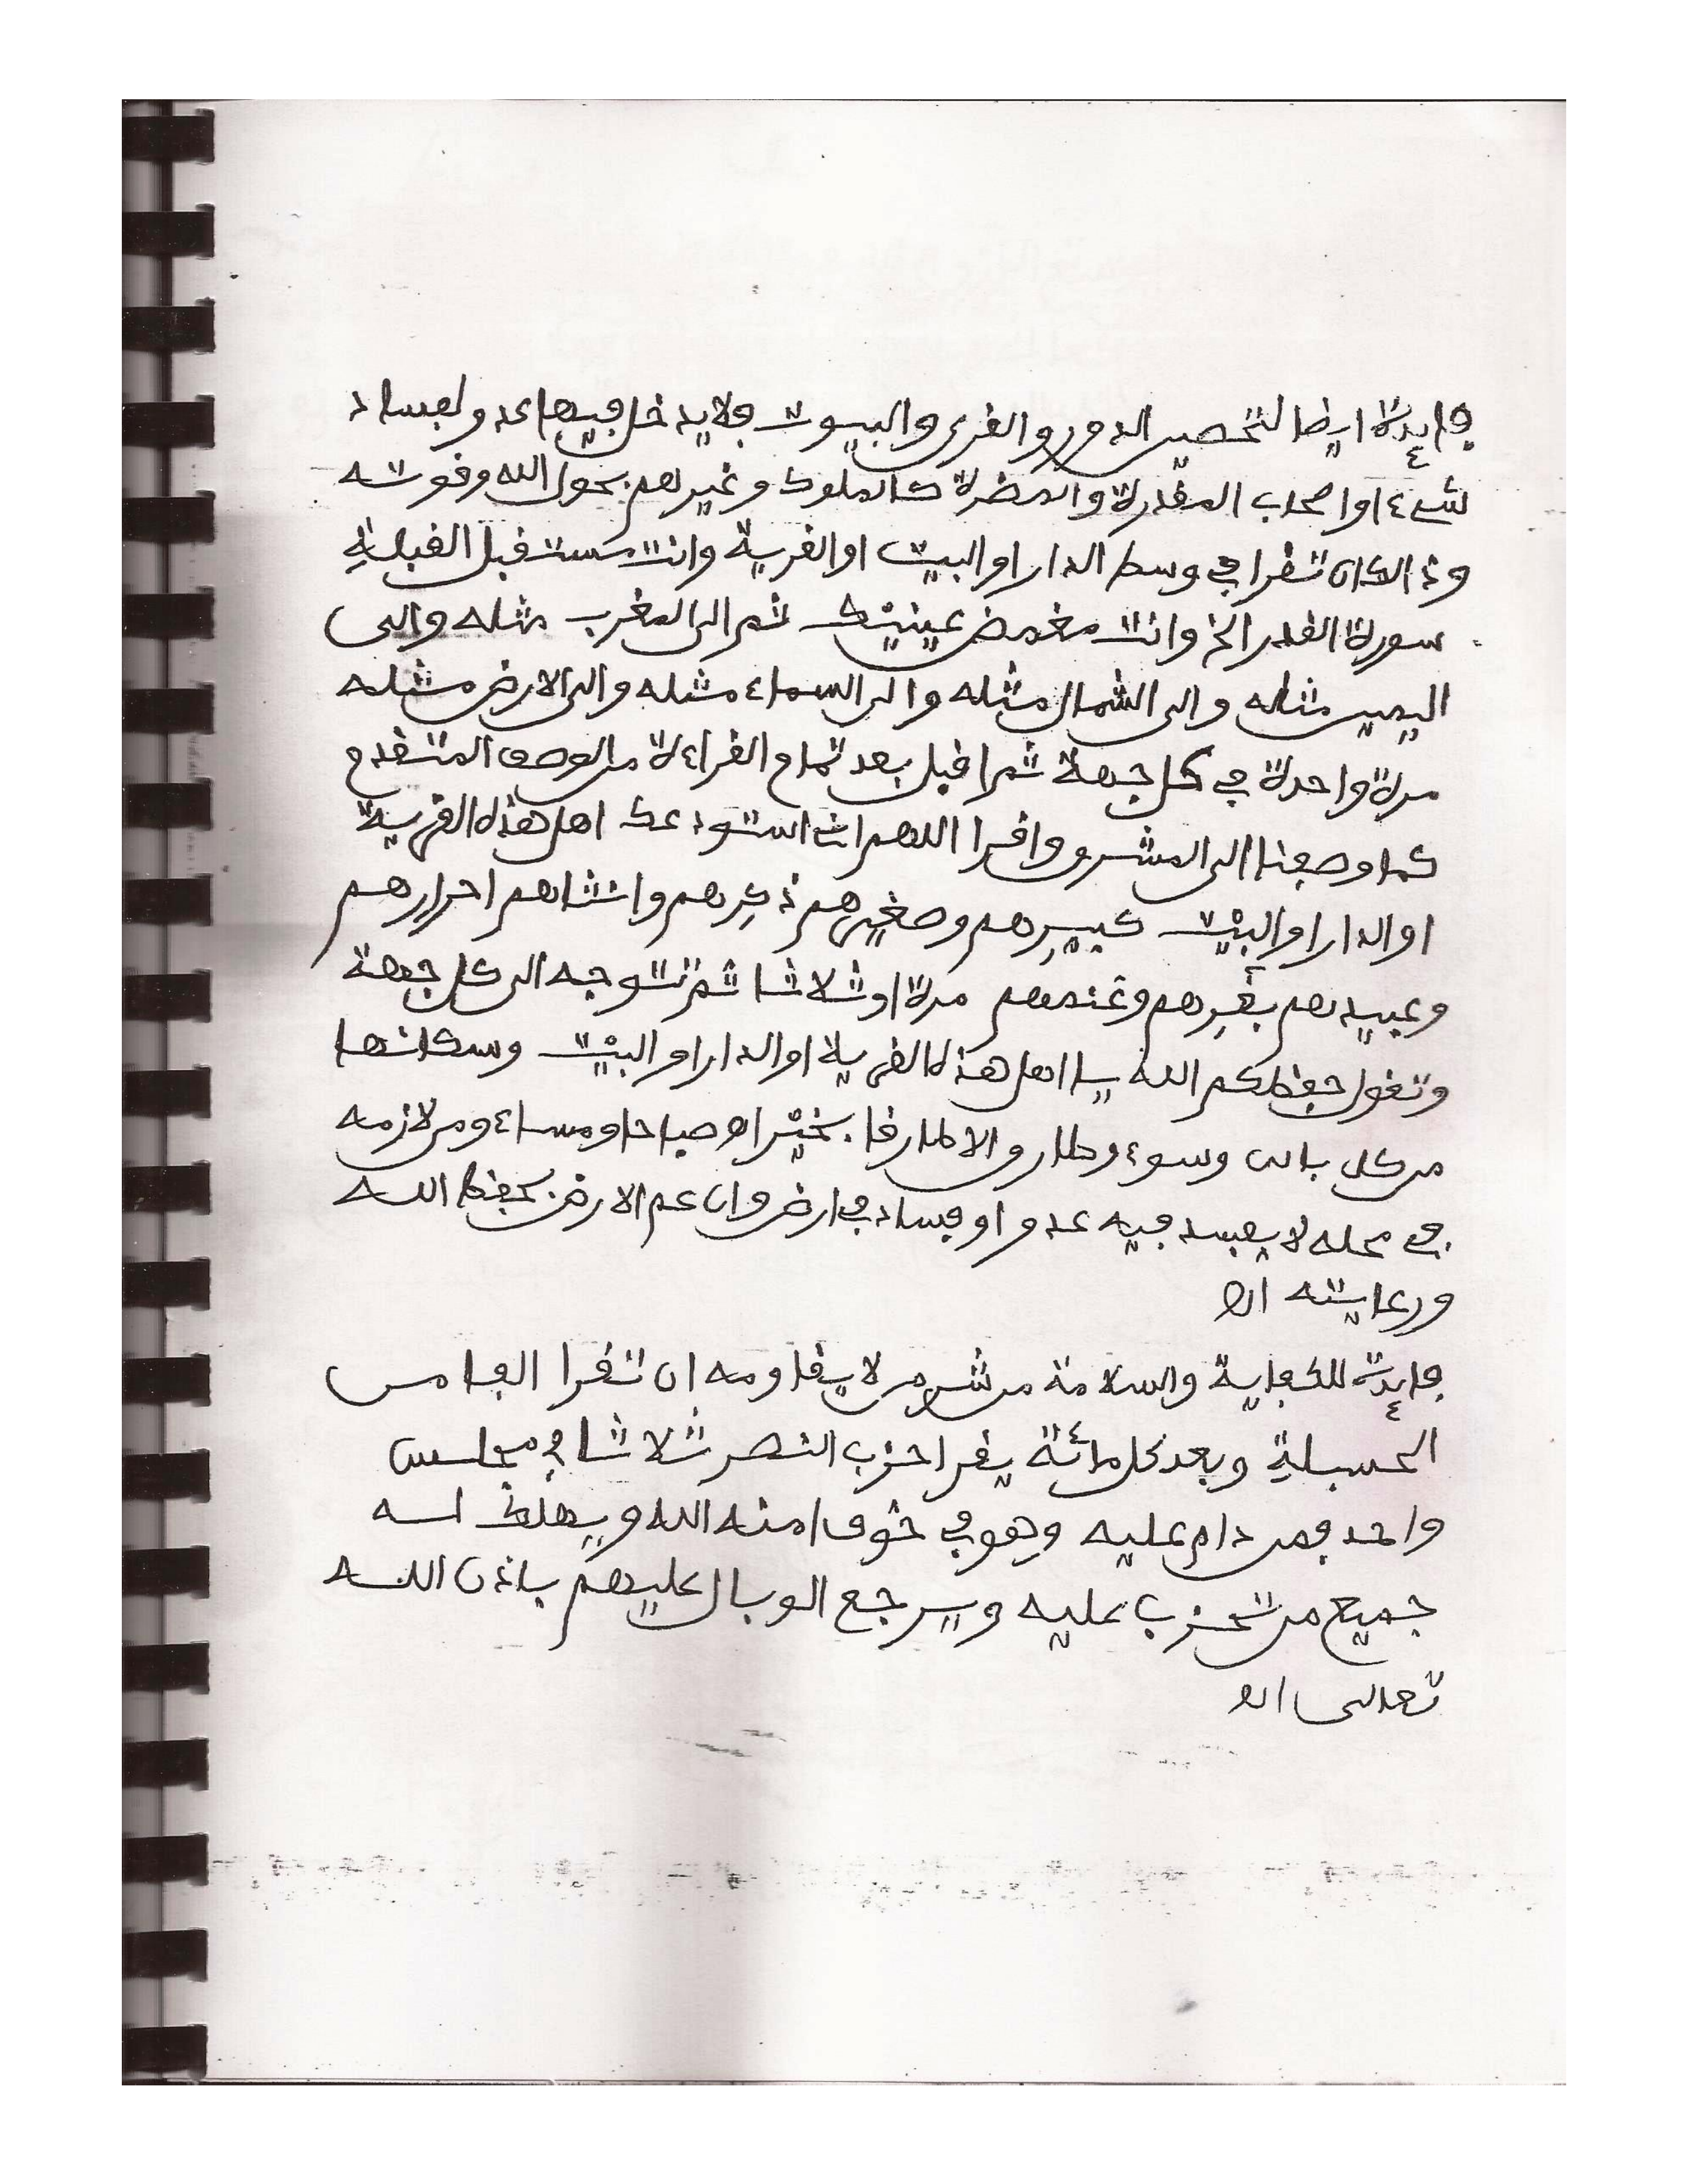 فايدة ايضا لتحصين الدور والقرى والبيوت فلا يدخل فيها عدو لفساد
شيء او اصحاب المقدرة والمضرة كالملوك وغيرهم بحول الله وقوته
وذالك ان تقرا في وسط الدار او البيت او القرية وانت مستقبل القبلة
سورة القدر الخ وانت مغمض عينيك ثم الى المغرب مثله والى
اليمين مثله والى الشمال مثله والى السماء مثله والى الارض مثله
مرة واحدة في كل جهة ثم اقبل بعد تمام القراءة من الوصف المتقدم
كما وصفنا الى المشرق واقرا اللهم اني استودعك اهل هذه القرية
او الدار او البيت كبيرهم وصغيرهم ذكرهم وانثاهم احرارهم
وعبيدهم بقرهم وغنمهم مرة او ثلاثا ثم تتوجه الى كل جهة
وتقول حفظكم الله يا اهل هذه القرية او الدار او البيت وسكانها
من كل باس وسوء وطارق الا طارقا بخير اه صباحا ومساء ومن لازمه
في محله لا يفسد فيه عدو او فساد في ارض وان عم الارض بحفظ الله
ورعايته اه
فايدة للكفاية والسلامة من شر من لا يقاومه ان تقرا الفا من
الحسبلة وبعد كل مائة يقرا حزب النصر ثلاثا في مجلس
واحد فمن دام عليه وهو في خوف امنه الله ويهلك له
جميع من تحزب عليه ويرجع الوبال عليهم باذن الله
تعالى اه